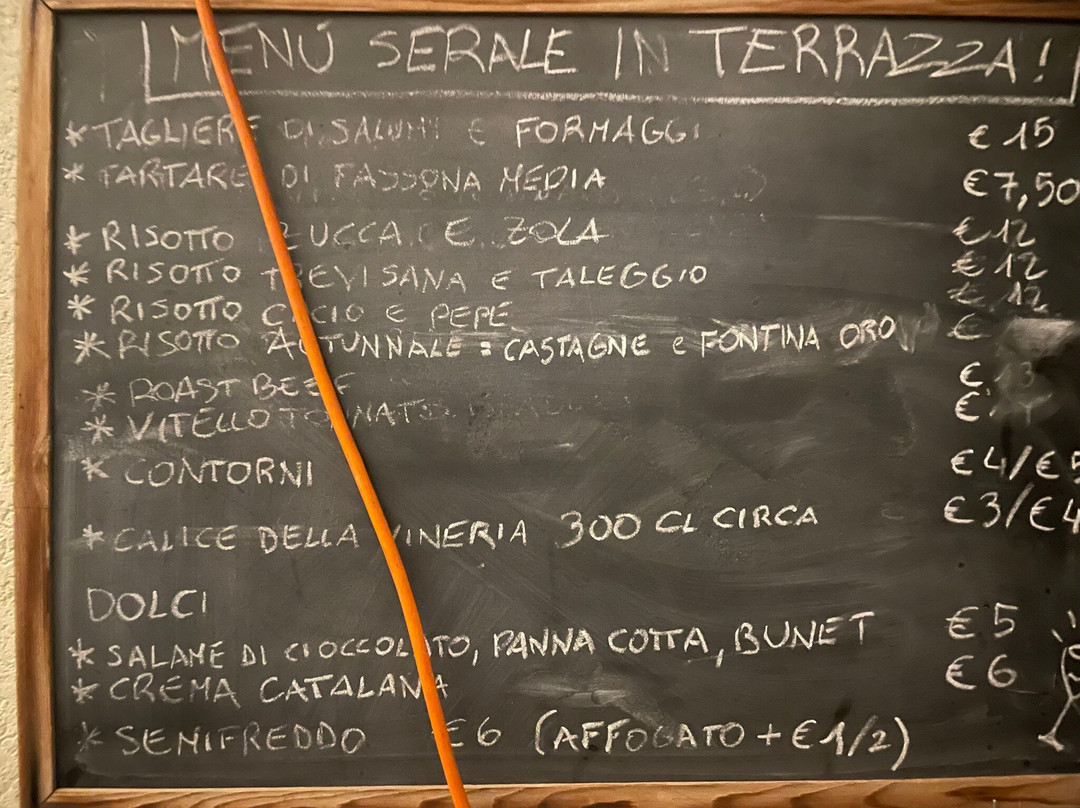 MENÚ SERALE IN TERRAZZA!
* TAGLIERE DI SALUMI E FORMAGGI € 15
* TARTARE DI FASSONA MEDIA € 7,50
* RISOTTO ZUCCA E ZOLA € 12
* RISOTTO TREVISANA E TALEGGIO € 12
* RISOTTO CACIO E PEPE € 12
* RISOTTO AUTUNNALE : CASTAGNE e FONTINA ORO €
* ROAST BEEF € 13
* VITELLO TONNATO €
* CONTORNI € 4/€ 5
* CALICE DELLA VINERIA 300 CL CIRCA € 3/€ 4
DOLCI
* SALAME DI CIOCCOLATO, PANNA COTTA, BUNET € 5
* CREMA CATALANA € 6
* SEMIFREDDO €6 (AFFOGATO + €1/2)